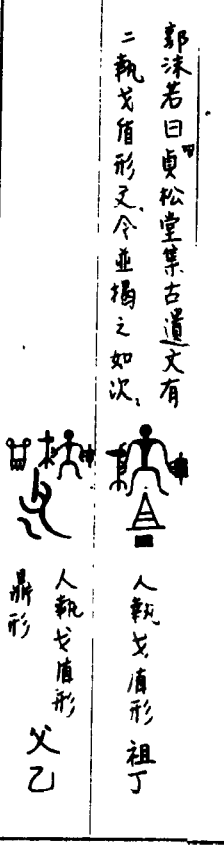 郭沫若曰貞松堂集古遺文有
二執戈盾形文、今並揭之如次、
人執戈盾形 祖丁
人執戈盾形 父乙
鼎形